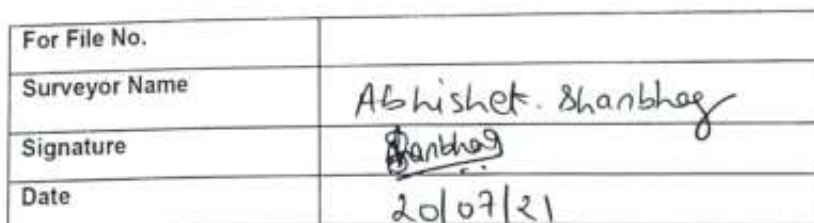 For File No.
Surveyor Name Abhishek. Shanbhag
Signature Shanbhag
Date 20/07/21